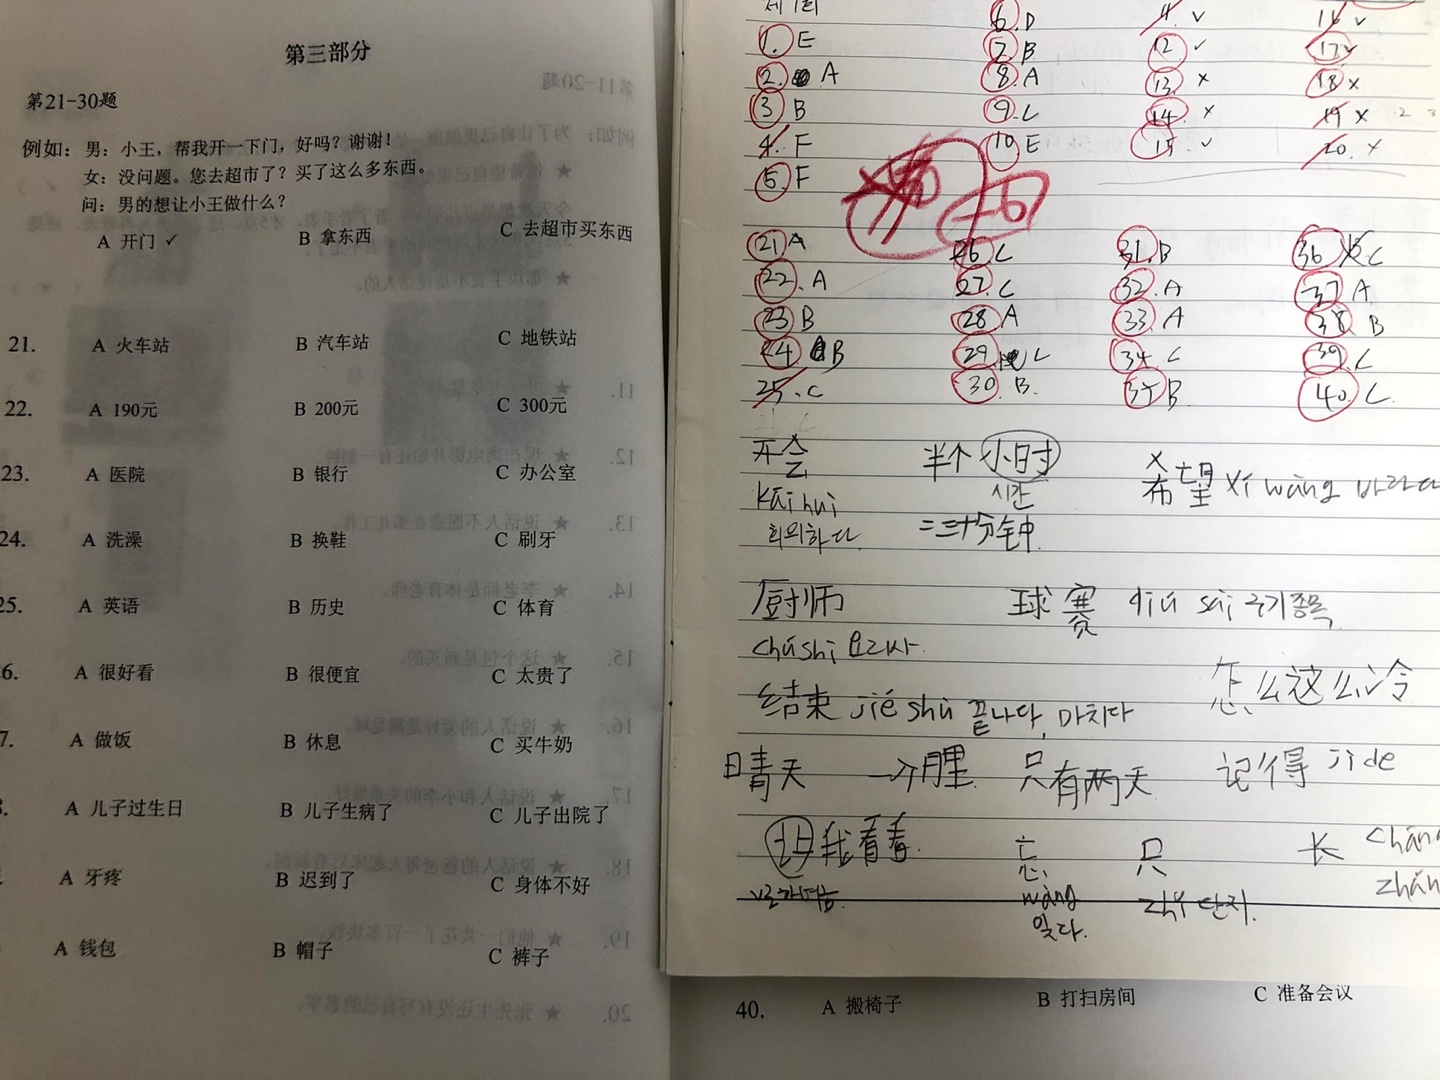 第三部分
第21-30题
例如：男：小王，帮我开一下门，好吗？谢谢！
女：没问题。您去超市了？买了这么多东西。
问：男的想让小王做什么？
A 开门 ✓ B 拿东西 C 去超市买东西
21. A 火车站 B 汽车站 C 地铁站
22. A 190元 B 200元 C 300元
23. A 医院 B 银行 C 办公室
24. A 洗澡 B 换鞋 C 刷牙
25. A 英语 B 历史 C 体育
6. A 很好看 B 很便宜 C 太贵了
7. A 做饭 B 休息 C 买牛奶
A 儿子过生日 B 儿子生病了 C 儿子出院了
A 牙疼 B 迟到了 C 身体不好
A 钱包 B 帽子 C 裤子
6. D
1. E 7. B 12 ✓ 17 ✓
2. A 8. A 13. × 18 ×
3 B 9. C 14. × 19 ×
4. F 10 E 15 ✓ 20. ×
5 F
21 A 26 C 31. B 36 C
22. A 27. C 32. A 37 A
23 B 28 A 33. A 38. B
24 B 29. C 34. C 39. C
25. C 30. B. 35 B 40. C
开会 半个小时 希望 xī wàng 바라다
Kāi huì 시간
회의하다 三十分钟
厨师 球赛 qiú sài 구기종목
chúshī 요리사.
怎么这么冷
结束 jié shù 끝나다, 마치다
晴天 一个月里 只有两天 记得 jì de
让我看看. 忘 只 长 cháng
wàng zhǐ 단지. zhǎng
잊다.
40. A 搬椅子 B 打扫房间 C 准备会议